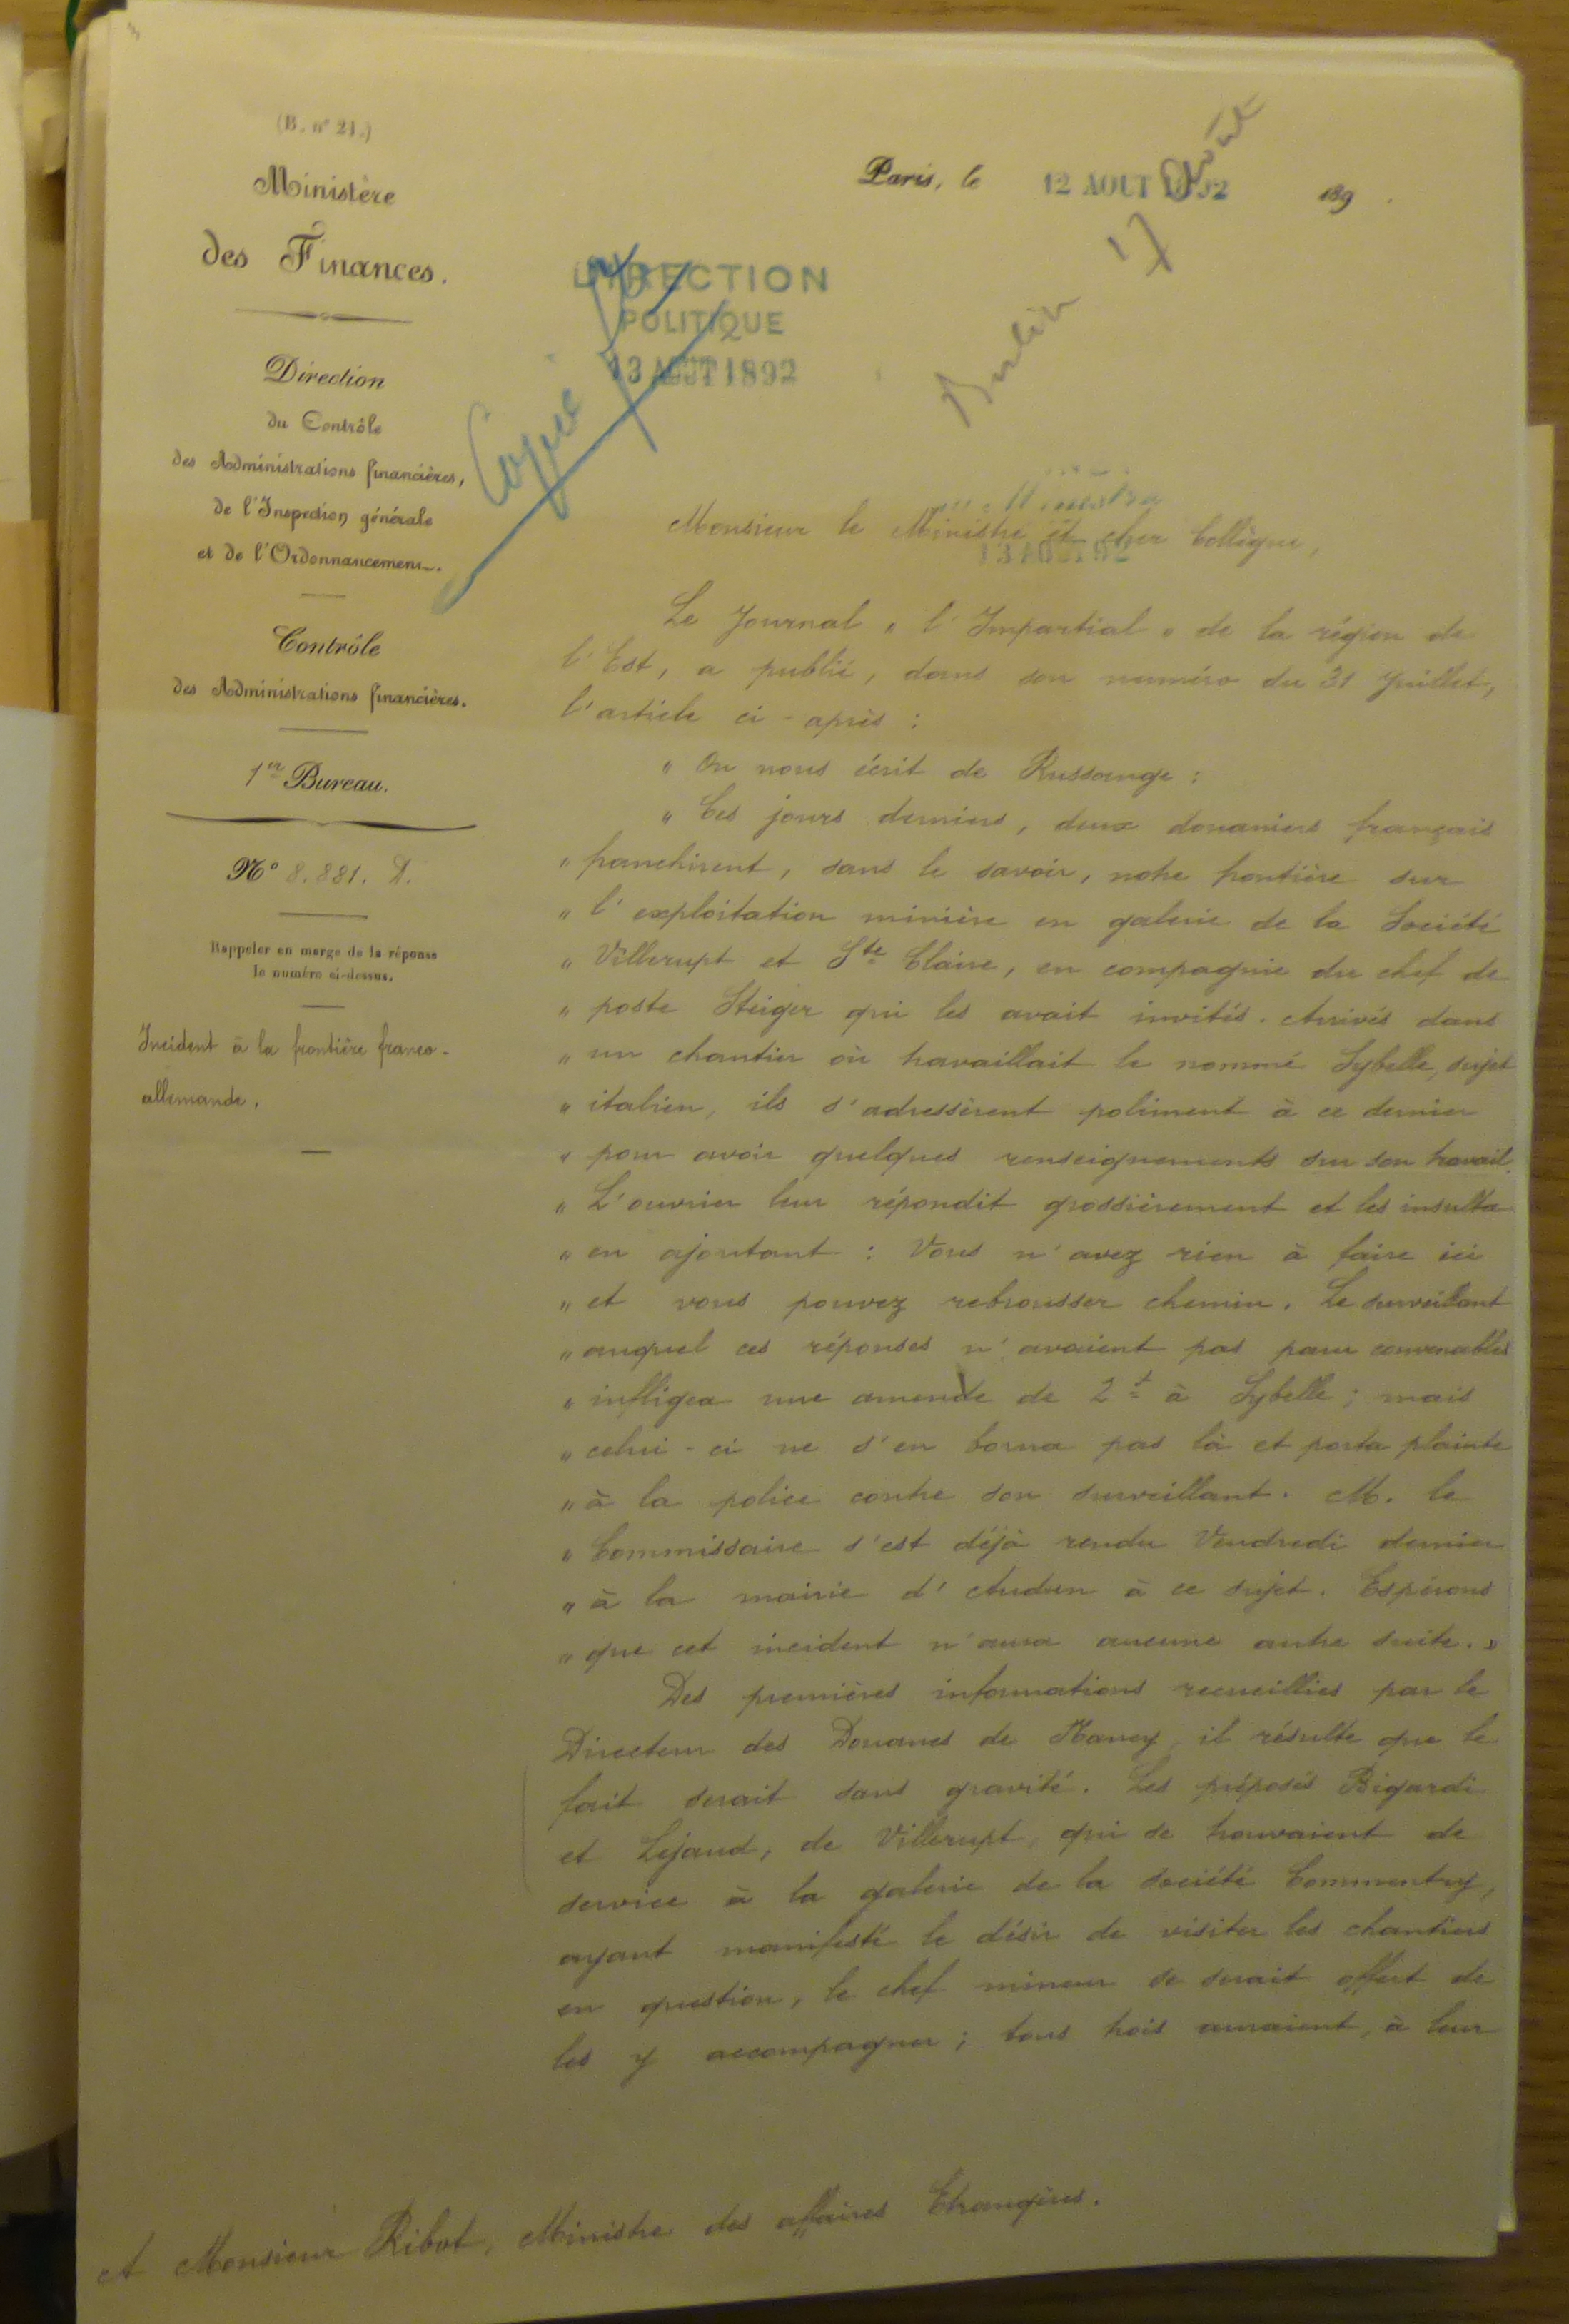 (B. n° 21.)
Ministère
des Finances.
Direction
du Contrôle
des Administrations financières,
de l'Inspection générale
et de l'Ordonnancement.
Contrôle
des Administrations financières.
1er Bureau.
N° 8.881. D.
Rappeler en marge de la réponse
le numéro ci-dessus.
Incident à la frontière franco-
allemande.
Paris, le 12 AOUT 1892 189 .
DIRECTION
POLITIQUE
13 AOUT 1892
Copie
Berlin 17 Août
13 AOUT 92
Monsieur le Ministre et cher Collègue,
Le Journal " l'Impartial " de la région de
l'Est, a publié, dans son numéro du 31 Juillet,
l'article ci-après :
" On nous écrit de Russange :
" Ces jours derniers, deux douaniers français
" franchirent, sans le savoir, notre frontière sur
" l'exploitation minière en galerie de la Société
" Villerupt et Ste Claire, en compagnie du chef de
" poste Steiger qui les avait invités. Arrivés dans
" un chantier où travaillait le nommé Sybelle, sujet
" italien, ils s'adressèrent poliment à ce dernier
" pour avoir quelques renseignements sur son travail.
" L'ouvrier leur répondit grossièrement et les insulta
" en ajoutant : Vous n'avez rien à faire ici
" et vous pouvez rebrousser chemin. Le surveillant
" auquel ces réponses n'avaient pas paru convenables
" infligea une amende de 2 f à Sybelle ; mais
" celui-ci ne s'en borna pas là et porta plainte
" à la police contre son surveillant. M. le
" Commissaire s'est déjà rendu Vendredi dernier
" à la mairie d'Audun à ce sujet. Espérons
" que cet incident n'aura aucune autre suite. "
Des premières informations recueillies par le
Directeur des Douanes de Nancy, il résulte que le
fait serait sans gravité. Les préposés Bigardi
et Lejaud, de Villerupt, qui se trouvaient de
service à la galerie de la société Commentry,
ayant manifesté le désir de visiter les chantiers
en question, le chef mineur se serait offert de
les y accompagner ; tous trois auraient, à leur
A Monsieur Ribot, Ministre des affaires Etrangères.